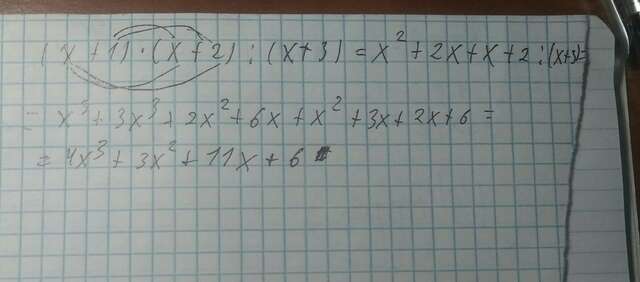 (x + 1) · (x + 2) : (x + 3) = x² + 2x + x + 2 : (x+3) =
= x³ + 3x³ + 2x² + 6x + x² + 3x + 2x + 6 =
= 4x³ + 3x² + 11x + 6